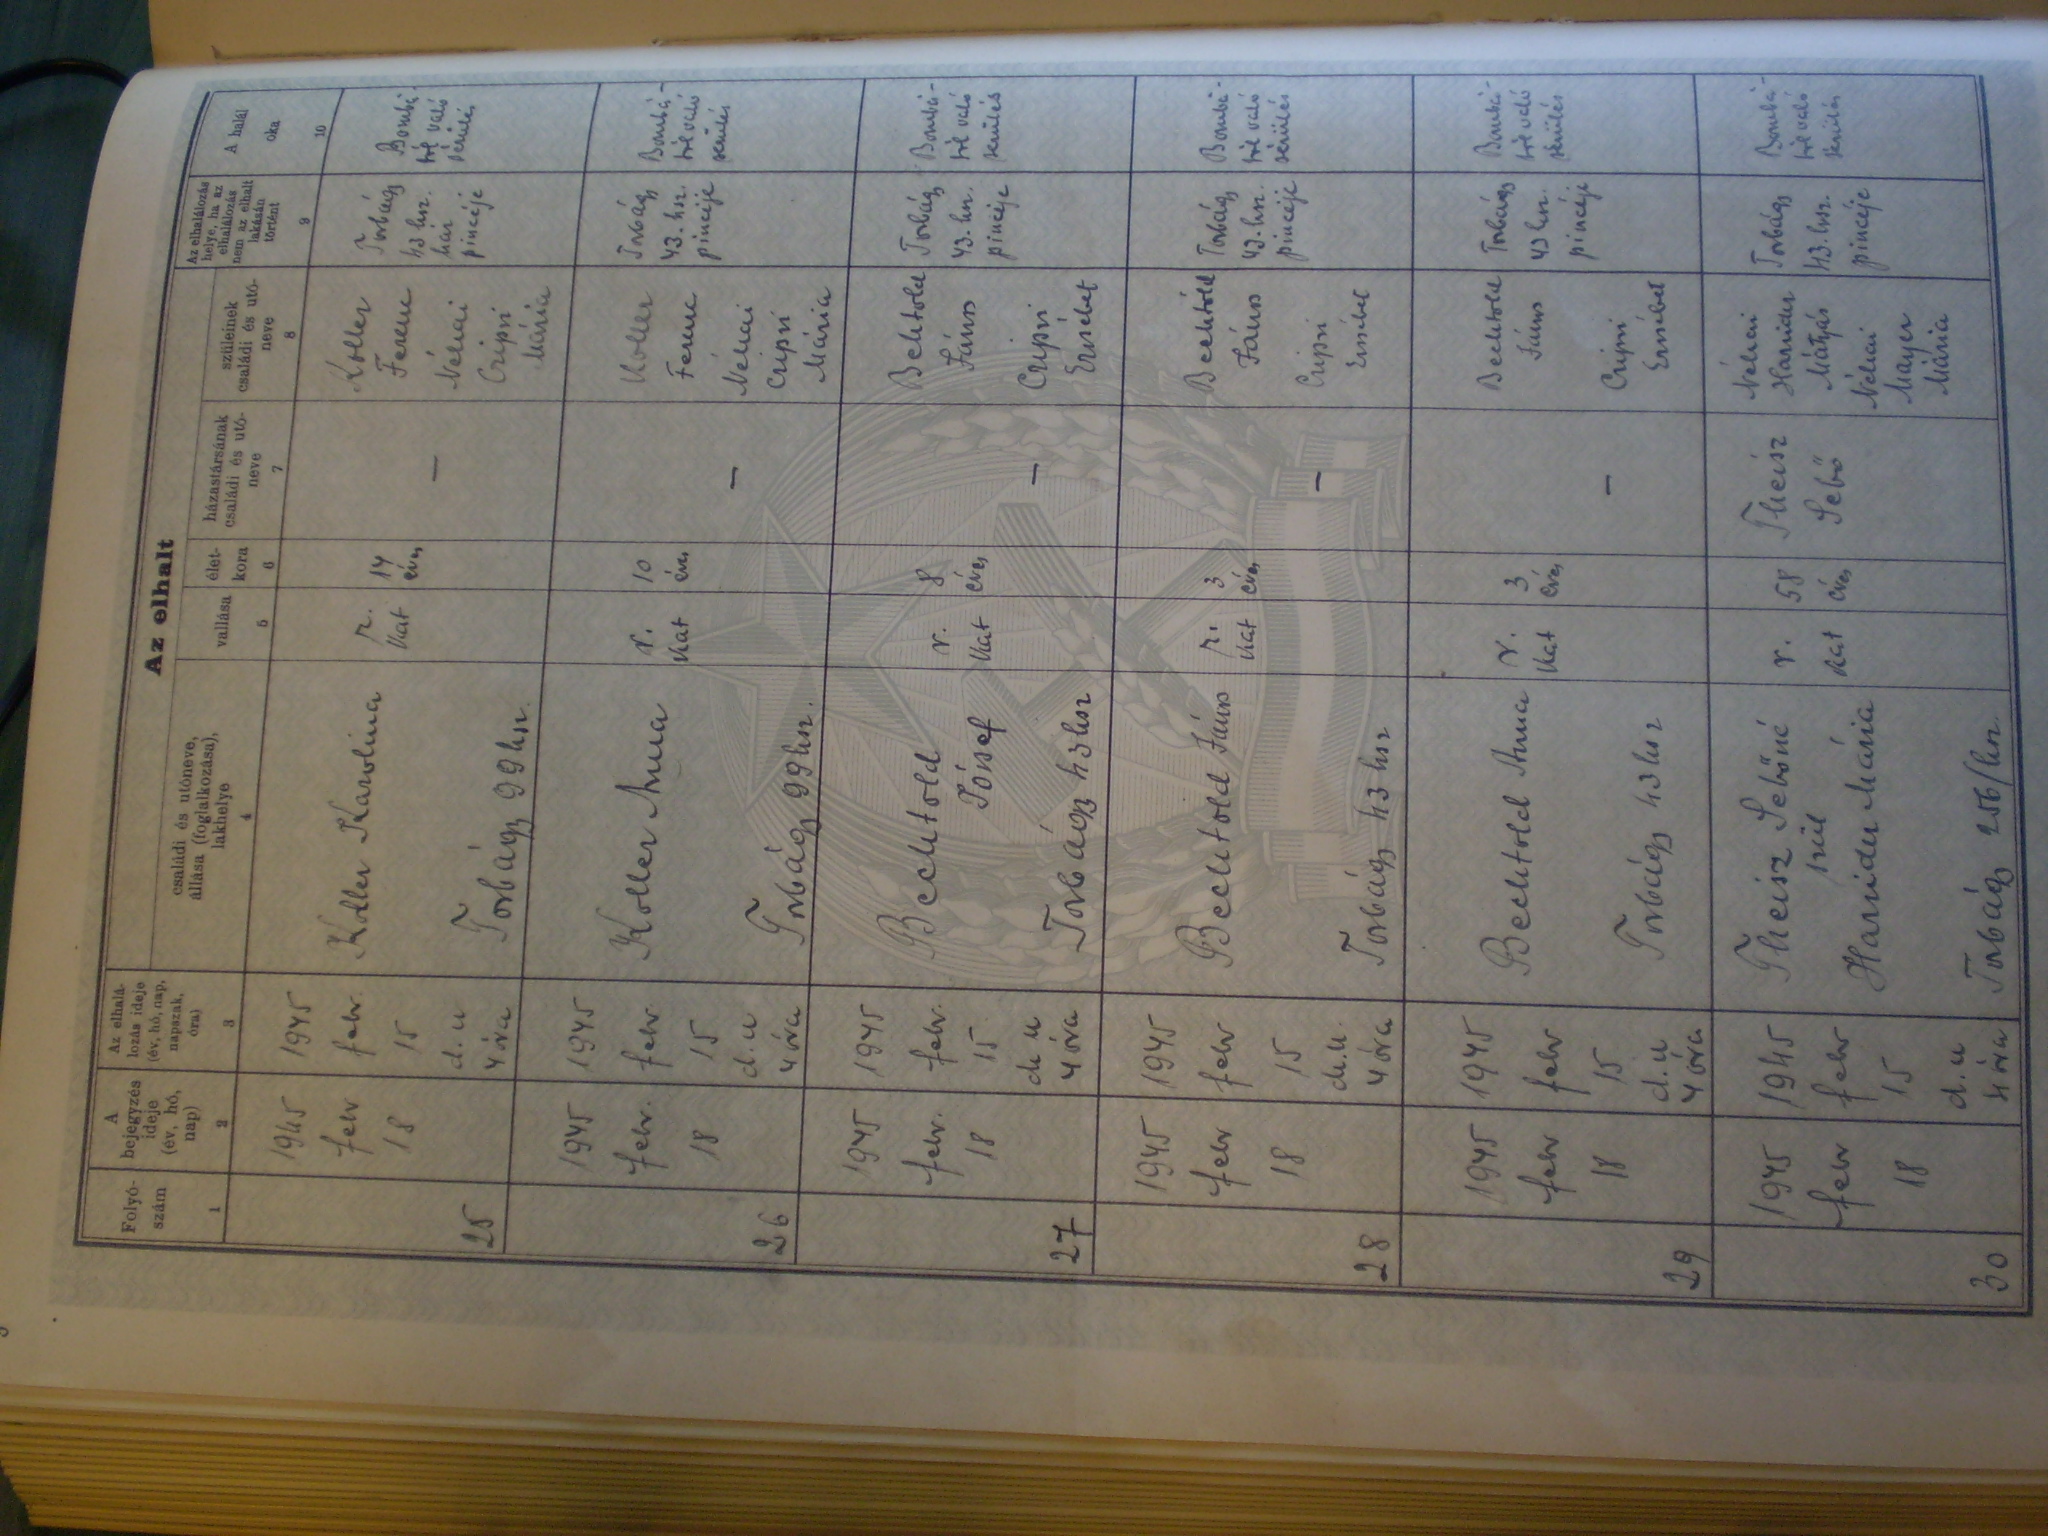 Az elhalt
Folyó-
szám
A
bejegyzés
ideje
(év, hó,
nap)
Az elhalá-
lozás ideje
(év, hó, nap,
napszak,
óra)
családi és utóneve,
állása (foglalkozása),
lakhelye
vallása
élet-
kora
házastársának
családi és utó-
neve
szüleinek
családi és utó-
neve
Az elhalálozás
helye, ha az
elhalálozás
nem az elhalt
lakásán
történt
A halál
oka
1
2
3
4
5
6
7
8
9
10
25
1945
febr
18
1945
febr.
15
d. u
4 óra
Koller Karolina
Torbágy 99 hsz.
r.
kat
14
éves
—
Koller
Ferenc
Néhai
Czipri
Mária
Torbágy
43 hsz.
ház
pincéje
Bombá-
tól való
sérülés
26
1945
febr.
18
1945
febr.
15
d. u
4 óra
Koller Anna
Torbágy 99 hsz.
r.
kat
10
éves
—
Koller
Ferenc
Néhai
Czipri
Mária
Torbágy
43. hsz.
pincéje
Bombá-
tól való
sérülés
27
1945
febr.
18
1945
febr.
15
du
4 óra
Bechtold
József
Torbágy 43 hsz
r.
kat
8
éves
—
Bechtold
János
Czipri
Erzsébet
Torbágy
43. hsz.
pincéje
Bombá-
tól való
sérülés
28
1945
febr
18
1945
febr
15
d.u.
4 óra
Bechtold János
Torbágy 43 hsz
r.
kat
3
éves
—
Bechtold
János
Czipri
Erzsébet
Torbágy
43. hsz.
pincéje
Bombá-
tól való
sérülés
29
1945
febr
18
1945
febr
15
d.u
4 óra
Bechtold Anna
Torbágy 43 hsz
r.
kat
3
éves
—
Bechtold
János
Czipri
Erzsébet
Torbágy
43 hsz.
pincéje
Bombá-
tól való
sérülés
30
1945
febr
18
1945
febr
15
d. u
4 óra
Theisz Sebőné
szül
Mária
Torbágy 256/hsz.
r.
kat
58
éves
Theisz
Sebő
Néhai
Mátyás
Néhai
Mayer
Mária
Torbágy
43. hsz.
pincéje
Bombá-
tól való
sérülés